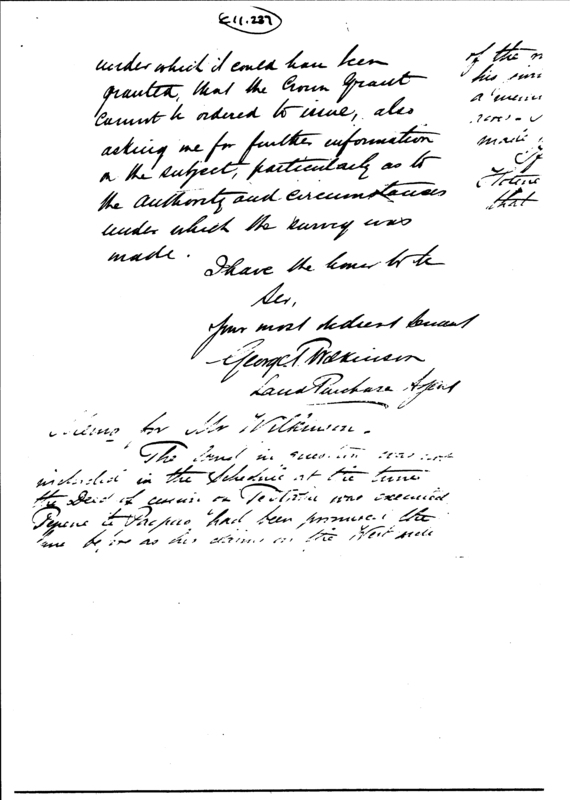 E11.237
under which it could have been
granted, that the Crown Grant
cannot be ordered to issue, also
asking me for further information
on the subject, particularly as to
the authority and circumstances
under which the survey was
made.
I have the honor to be
Sir,
Your most obedient Servant
George T. Wilkinson
Land Purchase Agent
of the
his
a
made
that
Memo for Mr Wilkinson.
The land in question was not
included in the Schedule at the time
the Deed of on was executed
had been promised the
as his claims on the West side